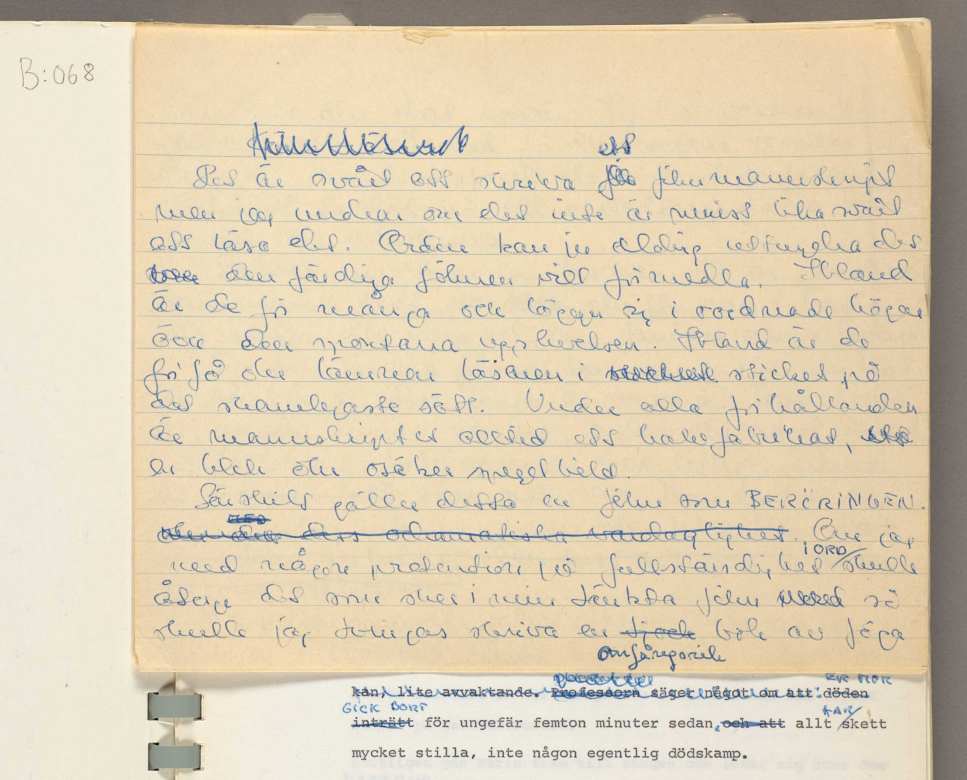 B:068
ett
Det är svårt att skriva filmmanuskript
men jag undrar om det inte är minst lika svårt
att läsa det. Orden kan ju aldrig uttrycka det
den färdiga filmen vill förmedla. Ibland
är de för många och lägger sig i oordnade högar
över den spontana upplevelsen. Ibland är de
för få och lämnar läsaren i sticket på
det skamligaste sätt. Under alla förhållanden
är manuskriptet alltid ett halvfabrikat,
en blek och osäker spegelbild.
Särskilt gäller detta en film som BERÖRINGEN.
MED
den dess odramatiska vardaglighet. Om jag
i ORD
med någon pretention på fullständighet skulle
återge det som sker i min tänkta film så
skulle jag tvingas skriva en tjock bok av föga
ÄR MOR
kan, lite avvaktande. Professorn säger något om att döden
GICK BORT HAR
inträtt för ungefär femton minuter sedan, och att allt skett
mycket stilla, inte någon egentlig dödskamp.